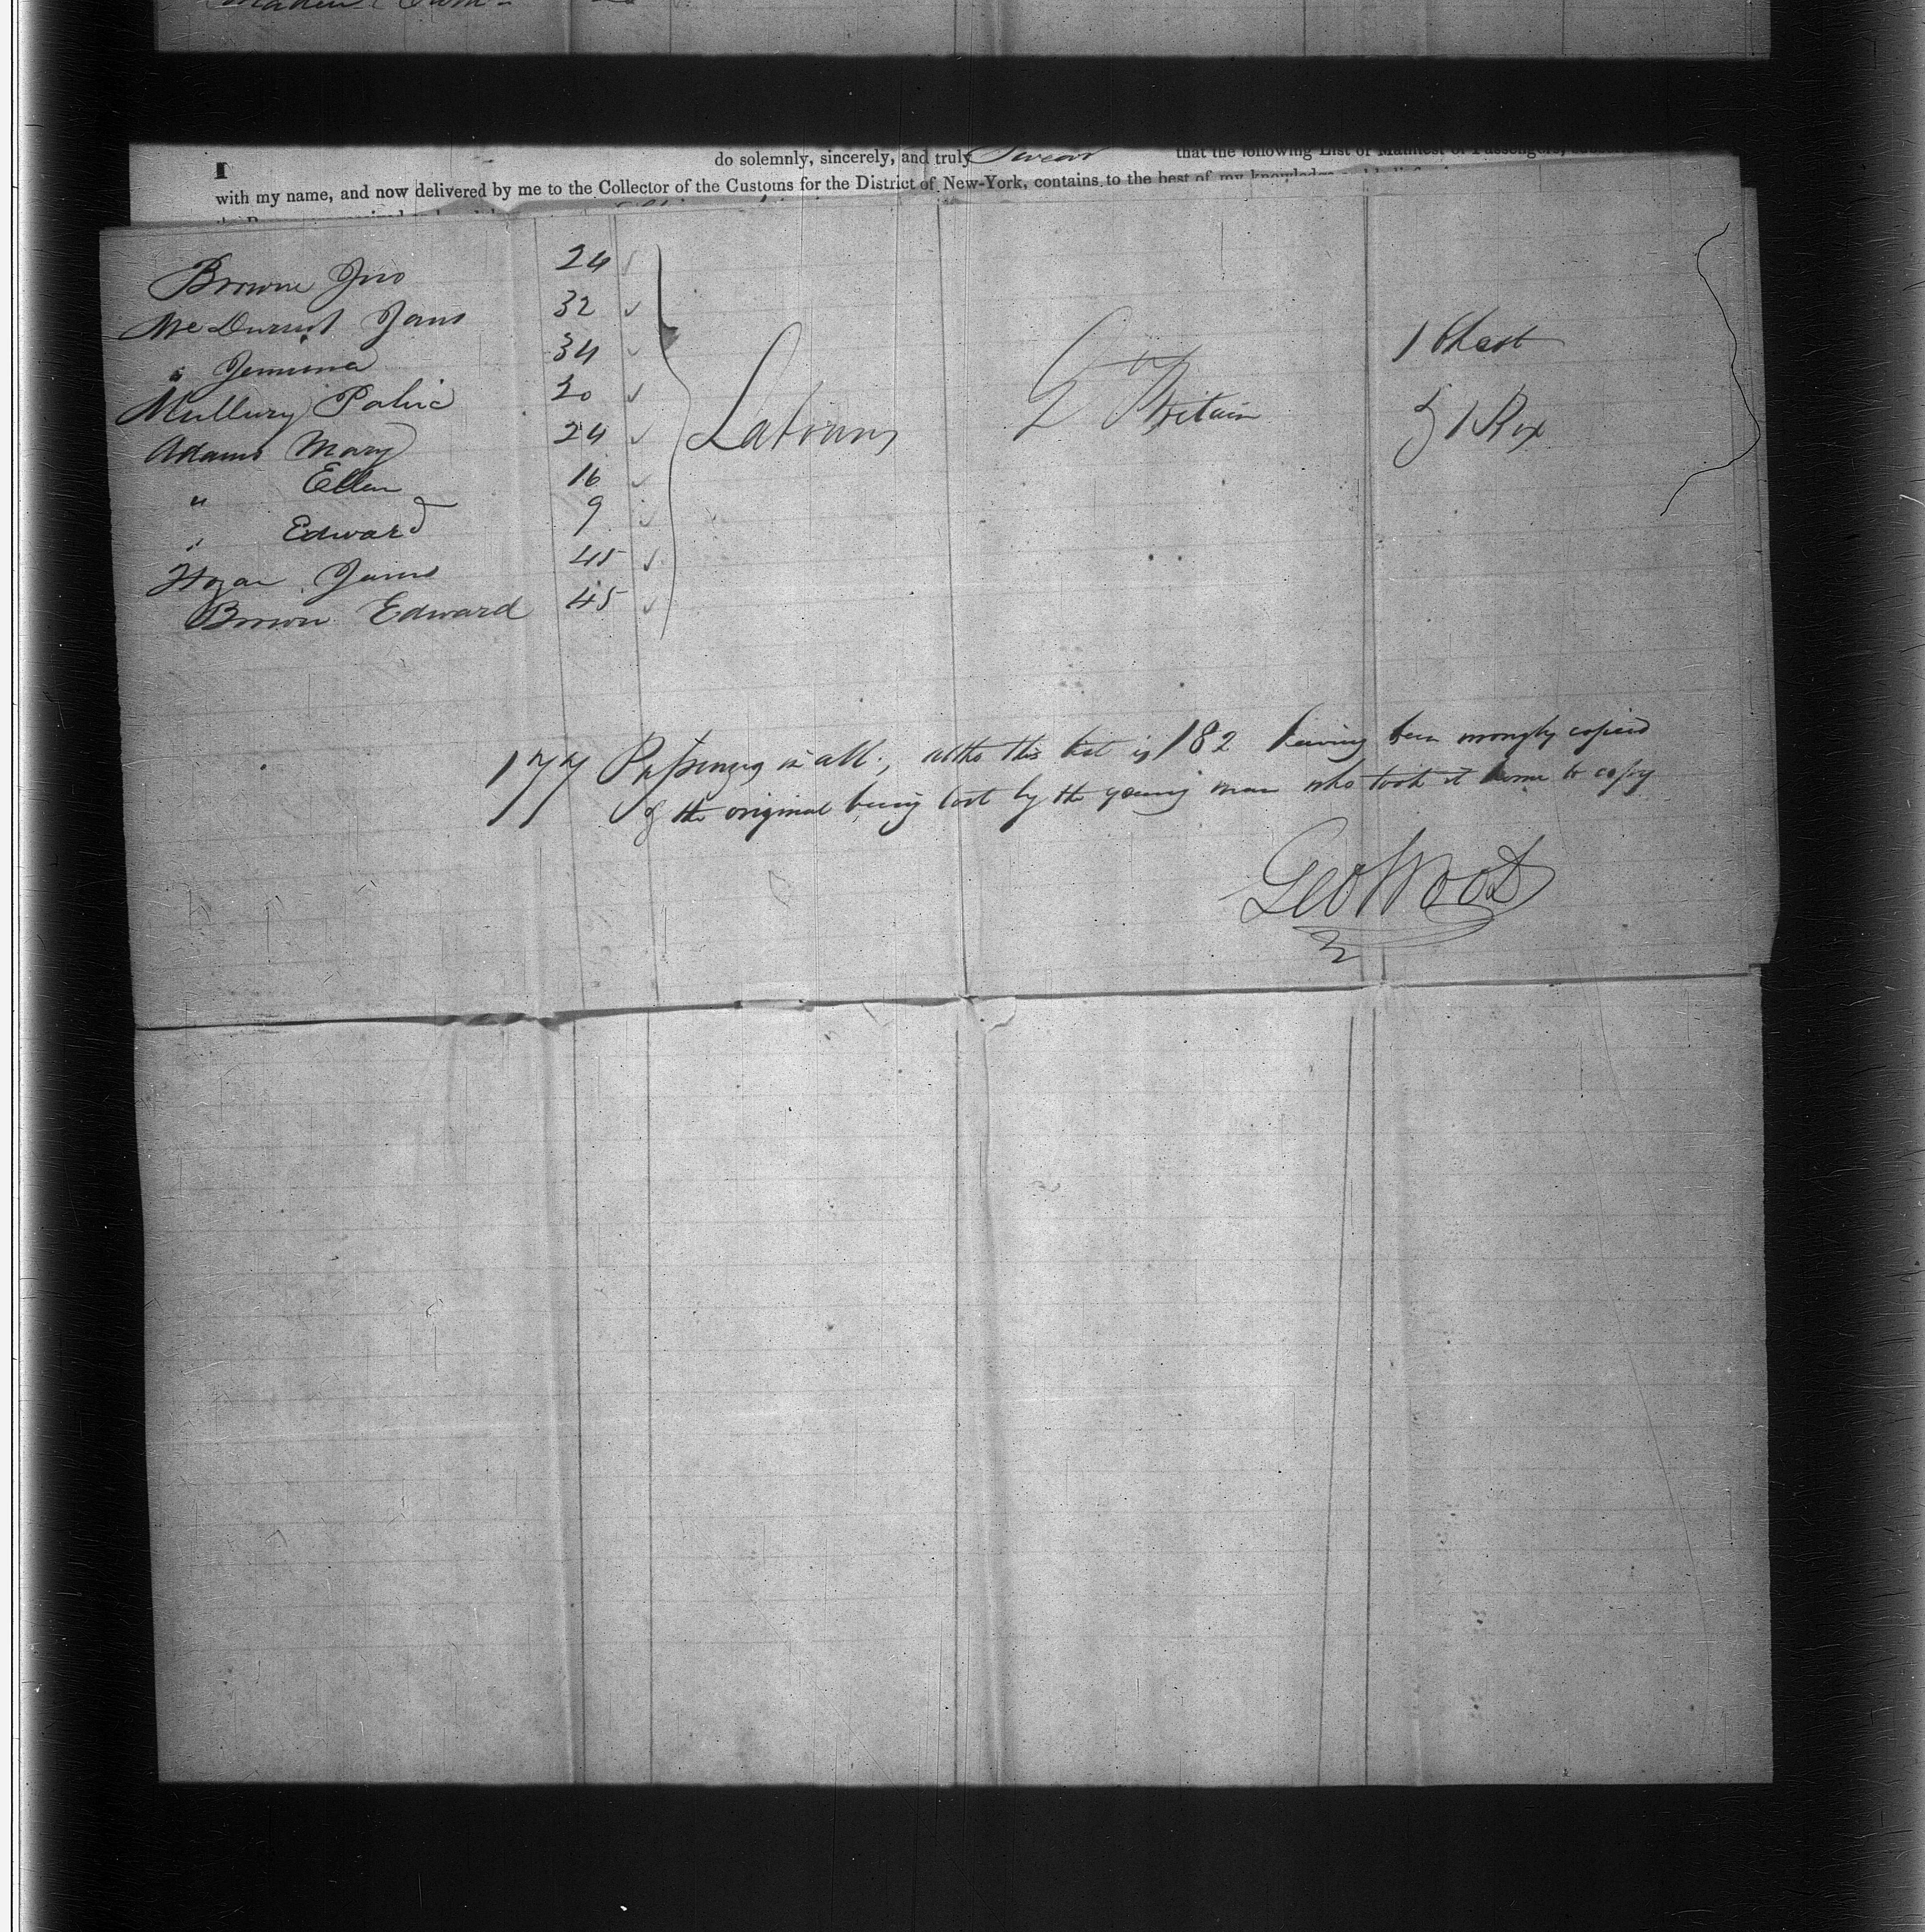 do solemnly, sincerely, and truly Swear that the following List or Manifest of Passengers,
with my name, and now delivered by me to the Collector of the Customs for the District of New-York, contains to the best of my knowledge
Browne Jno 24
McDurmot Jams 32
" Jemima 34
Mullury 20
Adams Mary 24
" Ellen 16
" Edward 9
Hogan James 45
Brown Edward 45
Labourers
Gt Britain
1 Chest
& 1 Box
177 Passengers in all, altho this list is 182 having been wrongly copied
of the original being lost by the young man who took it home to copy
Geo Wood